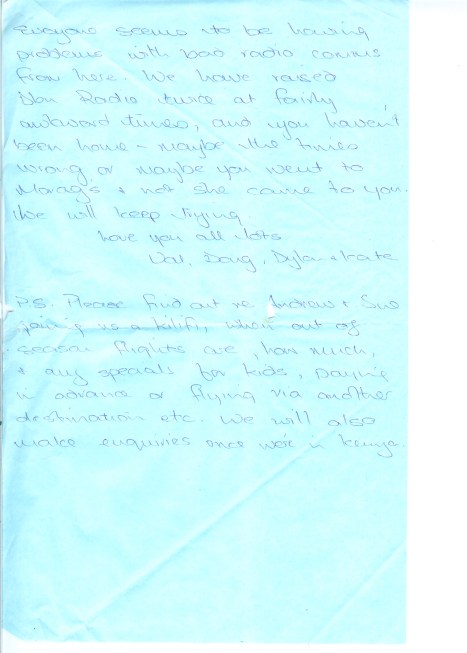 Everyone seems to be having
problems with bad radio comms
from here. We have raised
Dbn Radio twice at fairly
awkward times, and you haven't
been home - maybe the times
wrong or maybe you went to
Morag's & not she came to you.
We will keep trying.
Love you all lots
Val, Doug, Dylan & Kate
P.S. Please find out re Andrew & Sue
joining us a Kilifi, when out of
season flights are, how much,
& any specials for kids, paying
in advance or flying via another
destination etc. We will also
make enquiries once we're in Kenya.